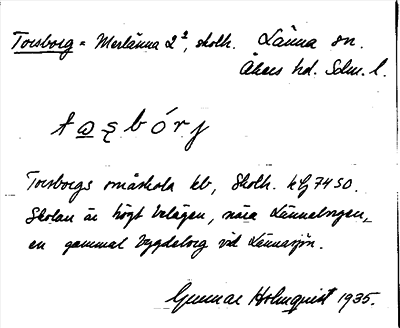 Torsborg = Merlänna 2², skolh. Länna sn.
Åkers hd. Sdm. l.
Torsborgs småskola kb, Skolh. kfg 7450.
Skolan är högt belägen, nära Lännaborgen,
en gammal bygdeborg vid Lännasjön.
Gunnar Holmquist 1935.